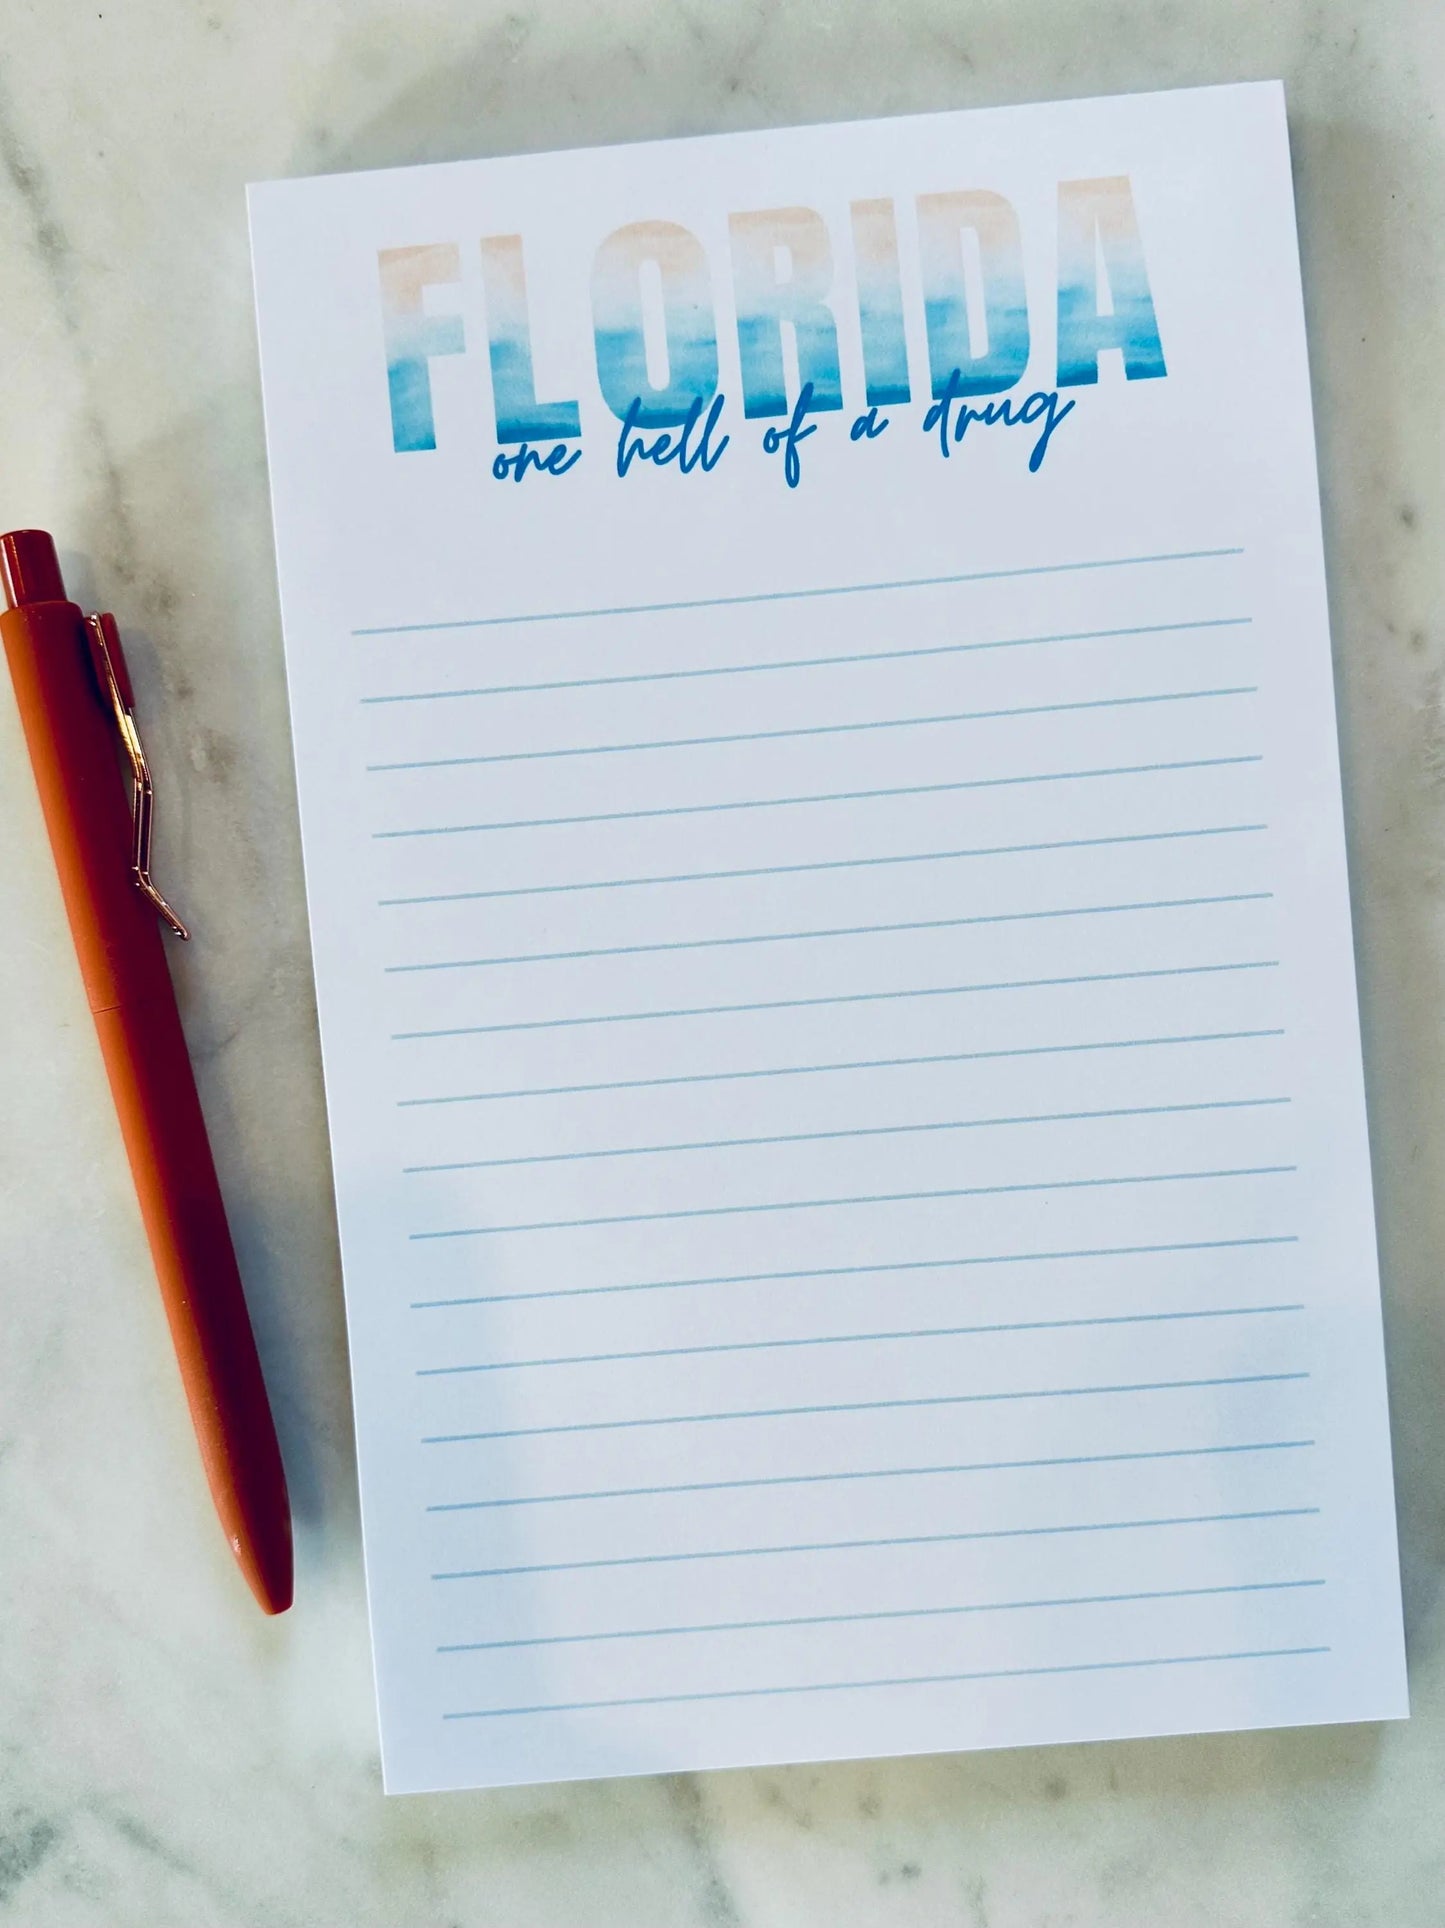 FLORIDA
one hell of a drug